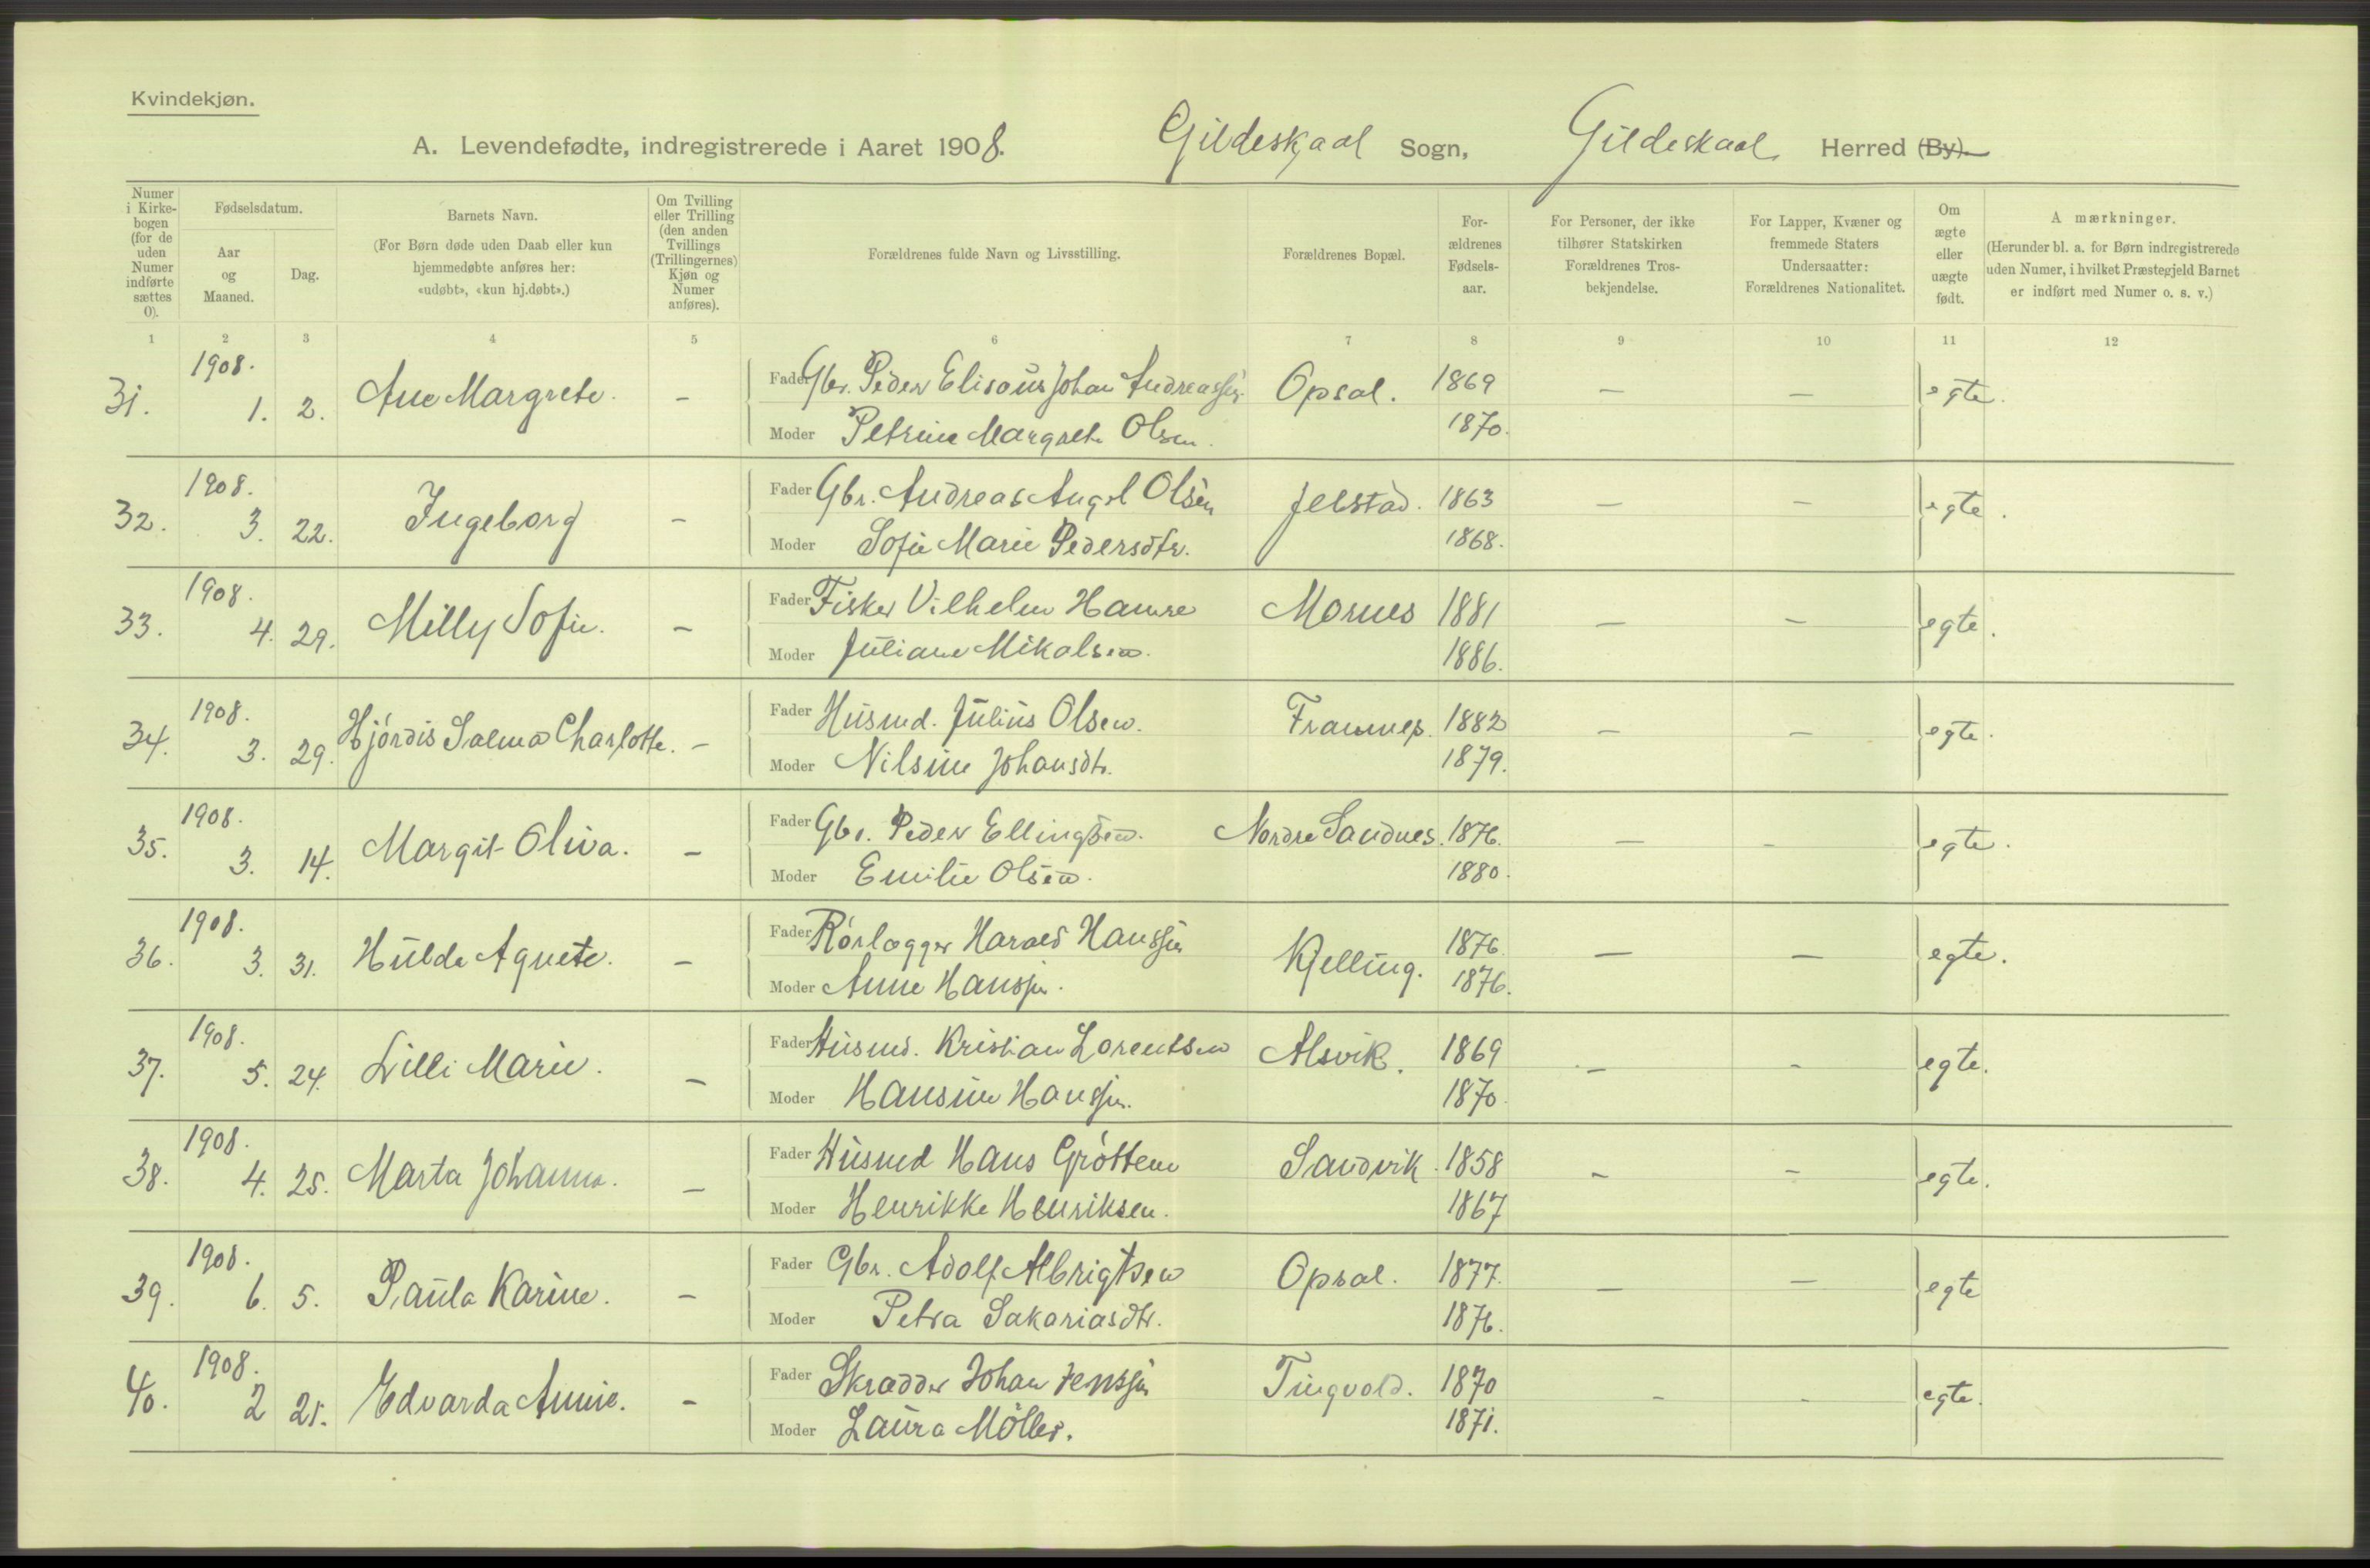 Kvindekjøn.
A. Levendefødte, indregistrerede i Aaret 1908. Gildeskaal Sogn, Gildeskaal Herred (By).
Numer i Kirkebogen (for de uden Numer indførte sættes 0).
Fødselsdatum.
Aar og Maaned.
Dag.
Barnets Navn.
(For Børn døde uden Daab eller kun hjemmedøbte anføres her: «udøbt», «kun hj.døbt».)
Om Tvilling eller Trilling (den anden Tvillings (Trillingernes) Kjøn og Numer anføres).
Forældrenes fulde Navn og Livsstilling.
Forældrenes Bopæl.
Forældrenes Fødselsaar.
For Personer, der ikke tilhører Statskirken Forældrenes Trosbekjendelse.
For Lapper, Kvæner og fremmede Staters Undersaatter: Forældrenes Nationalitet.
Om ægte eller uægte født.
A mærkninger.
(Herunder bl. a. for Børn indregistrerede uden Numer, i hvilket Præstegjeld Barnet er indført med Numer o. s. v.)
1 2 3 4 5 6 7 8 9 10 11 12
31. 1908. 1. 2. Ane Margrete. - Fader Gbr. Peder Elisæus Johan Andreassen Opsal. 1869 - - egte.
Moder Petrine Margrete Olsen. 1870.
32. 1908. 3. 22. Ingeborg - Fader Gbr. Andreas Angel Olsen Jelstad. 1863 - - egte.
Moder Sofie Marie Pedersdtr. 1868.
33. 1908. 4. 29. Milly Sofie. - Fader Fisker Vilhelm Hamre Mornes 1881 - - egte.
Moder Juliane Mikalsen. 1886.
34. 1908. 3. 29. Hjórdis Salma Charlotte. - Fader Husmd. Julius Olsen. Framnes. 1882 - - egte.
Moder Nilsine Johansdtr. 1879.
35. 1908. 3. 14. Margit Oliva. - Fader Gbr. Peder Ellingsen. Nordre Sandnes. 1876. - - egte.
Moder Emilie Olsen. 1880.
36. 1908. 3. 31. Hulda Agnete. - Fader Rórlægger Harald Hanssen Kjelling. 1876. - - egte.
Moder Anne Hanssen. 1876.
37. 1908. 5. 24. Lilli Marie. - Fader Husmd. Kristian Lorentsen Alsvik. 1869 - - egte.
Moder Hansine Hanssen. 1870.
38. 1908. 4. 25. Marta Johanna. - Fader Husmd Hans Gróttem Sandvik. 1858 - - egte.
Moder Henrikke Henriksen. 1867
39. 1908. 6. 5. Paula Karine. - Fader Gbr. Adolf Albrigtsen Opsal. 1877. - - egte
Moder Petra Sakariasdtr. 1876.
40. 1908. 2 21. Edvarda Annie. - Fader Skrædder Johan Jenssen Tingvold. 1870 - - egte.
Moder Laura Móller. 1871.